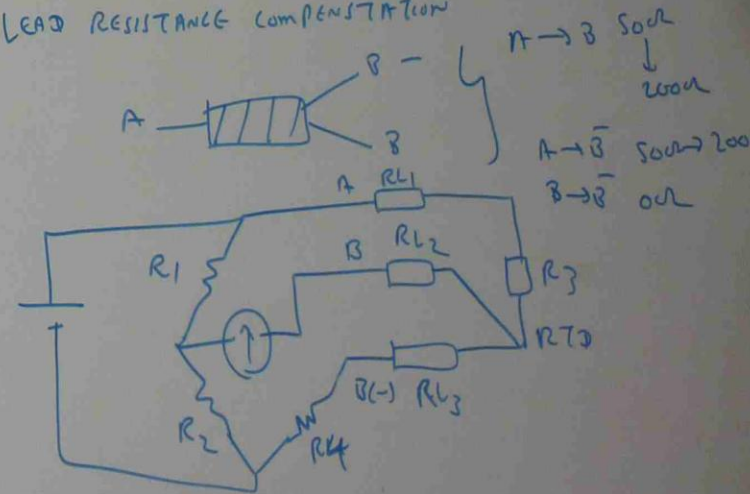 LEAD RESISTANCE COMPENSTATION
A → B 50Ω
↓
200Ω
B -
A
B
A → B̄ 50Ω → 200
B → B̄ 0Ω
A RL1
R1
B RL2
R3
RTD
B(-) RL3
R2
R4